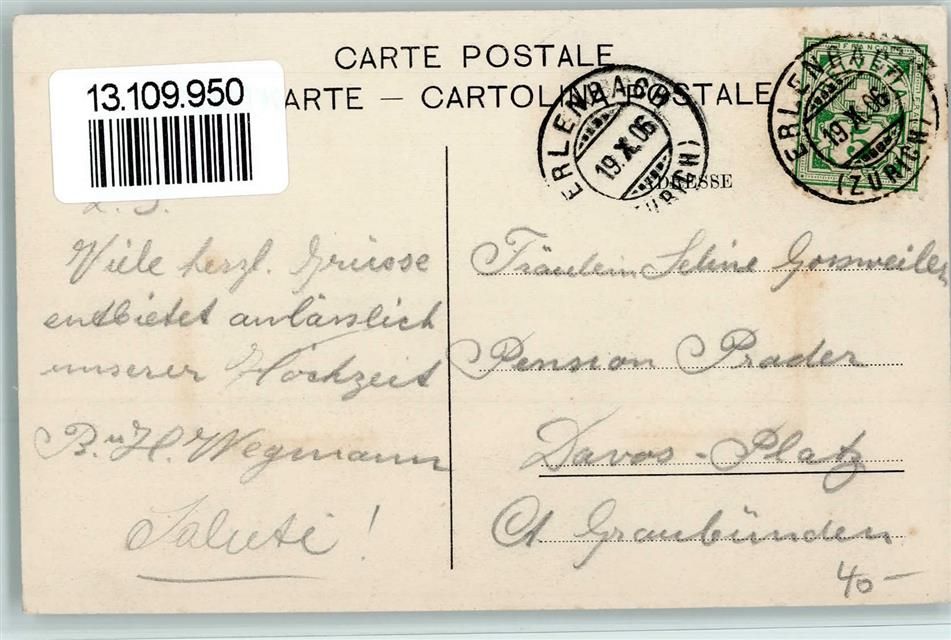 CARTE POSTALE
13.109.950
ARTE — CARTOLINA POSTALE
ERLENBACH (ZÜRICH)
19.X.06
ERLENBACH (ZÜRICH)
19.X.06
ADRESSE
L. S.
Viele herzl. Grüsse
entbietet anlässlich
unserer Hochzeit
B. u. H. Wegmann
Saluti!
Fräulein Seline Gossweiler
Pension Prader
Davos-Platz
Ct. Graubünden
40-